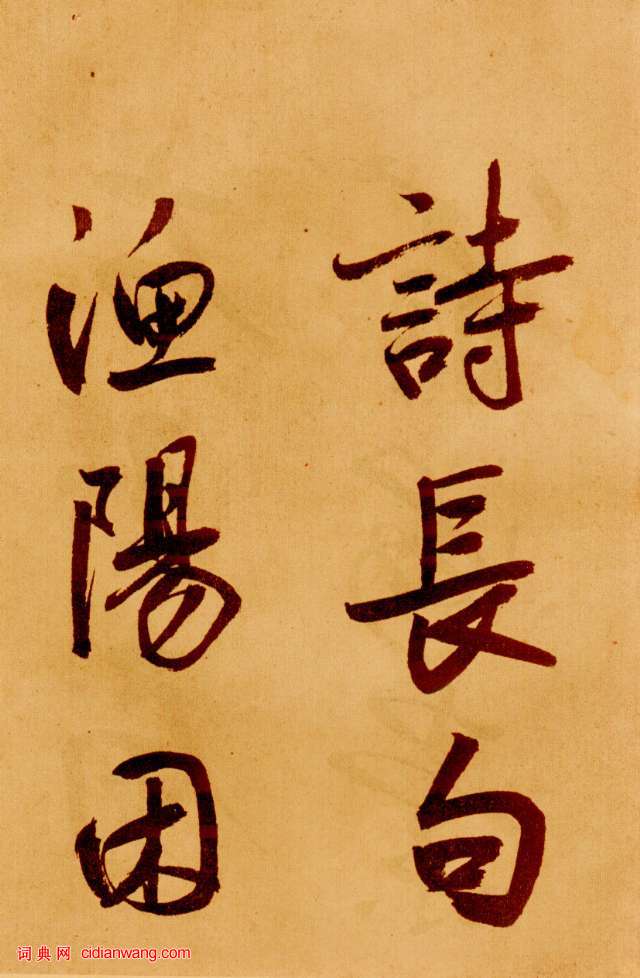 詩長句
漁陽困
词典网 cidianwang.com